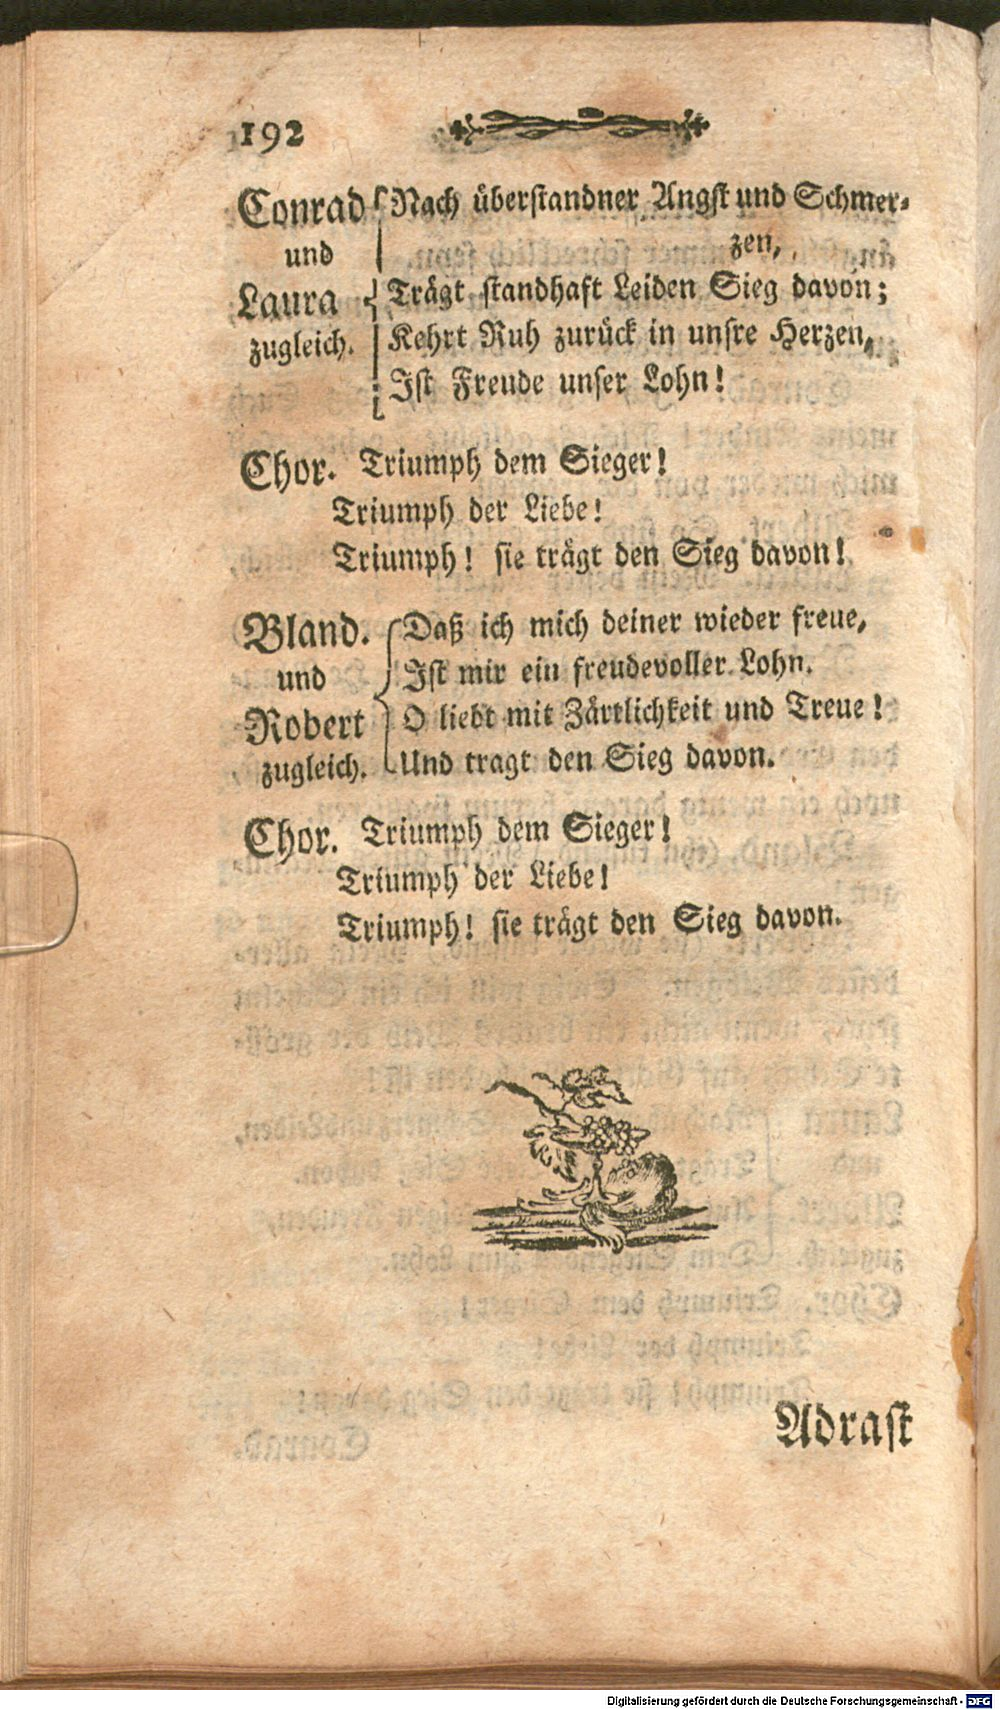 192
Conrad und Laura zugleich.
Nach überstandner Angst und Schmer-
zen,
Trägt standhaft Leiden Sieg davon;
Kehrt Ruh zurück in unsre Herzen,
Ist Freude unser Lohn!
Chor. Triumph dem Sieger!
Triumph der Liebe!
Triumph! sie trägt den Sieg davon!
Bland. und Robert zugleich.
Daß ich mich deiner wieder freue,
Ist mir ein freudevoller Lohn.
O liebt mit Zärtlichkeit und Treue!
Und tragt den Sieg davon.
Chor. Triumph dem Sieger!
Triumph der Liebe!
Triumph! sie trägt den Sieg davon.
Adrast
Digitalisierung gefördert durch die Deutsche Forschungsgemeinschaft - DFG